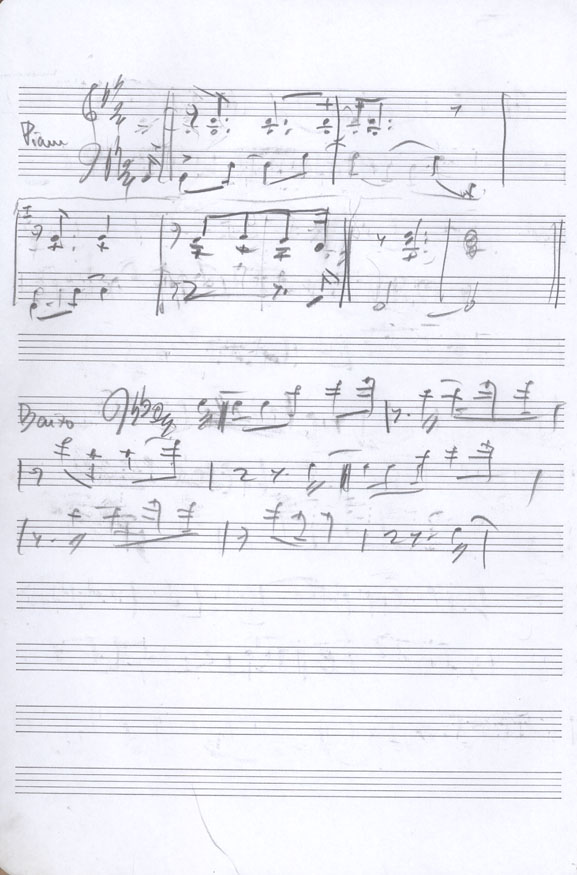 Piano
Baixo